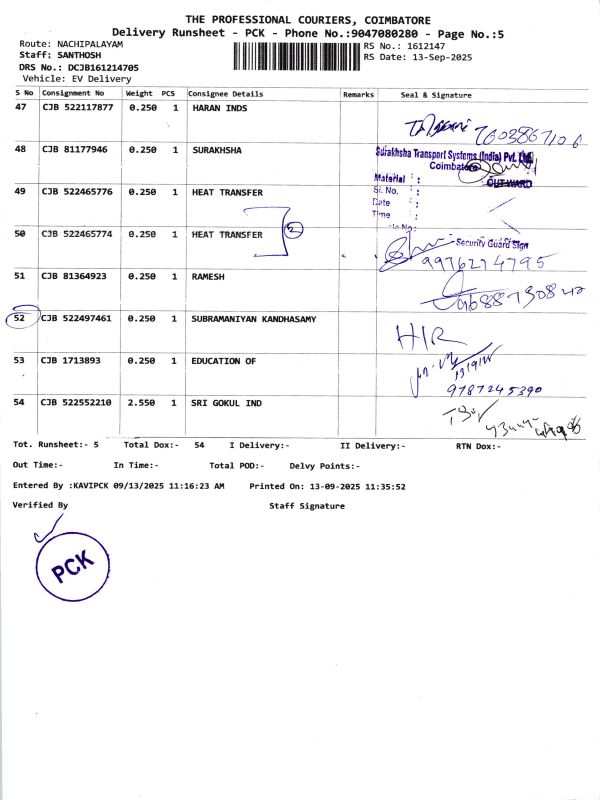 THE PROFESSIONAL COURIERS, COIMBATORE
Delivery Runsheet - PCK - Phone No.:9047080280 - Page No.:5
Route: NACHIPALAYAM RS No.: 1612147
Staff: SANTHOSH RS Date: 13-Sep-2025
DRS No.: DCJB161214705
Vehicle: EV Delivery
S No Consignment No Weight PCS Consignee Details Remarks Seal & Signature
47 CJB 522117877 0.250 1 HARAN INDS
7603867106
48 CJB 81177946 0.250 1 SURAKHSHA
Surakhsha Transport Systems (India) Pvt. Ltd.
Coimbatore
Material :
OUTWARD
49 CJB 522465776 0.250 1 HEAT TRANSFER
Sl. No. :
Date :
Time :
2
50 CJB 522465774 0.250 1 HEAT TRANSFER
Security Guard Sign
9976274795
51 CJB 81364923 0.250 1 RAMESH
52 CJB 522497461 0.250 1 SUBRAMANIYAN KANDHASAMY
H/R
53 CJB 1713893 0.250 1 EDUCATION OF
9787245390
54 CJB 522552210 2.550 1 SRI GOKUL IND
Tot. Runsheet:- 5 Total Dox:- 54 I Delivery:- II Delivery:- RTN Dox:-
Out Time:- In Time:- Total POD:- Delvy Points:-
Entered By :KAVIPCK 09/13/2025 11:16:23 AM Printed On: 13-09-2025 11:35:52
Verified By Staff Signature
PCK